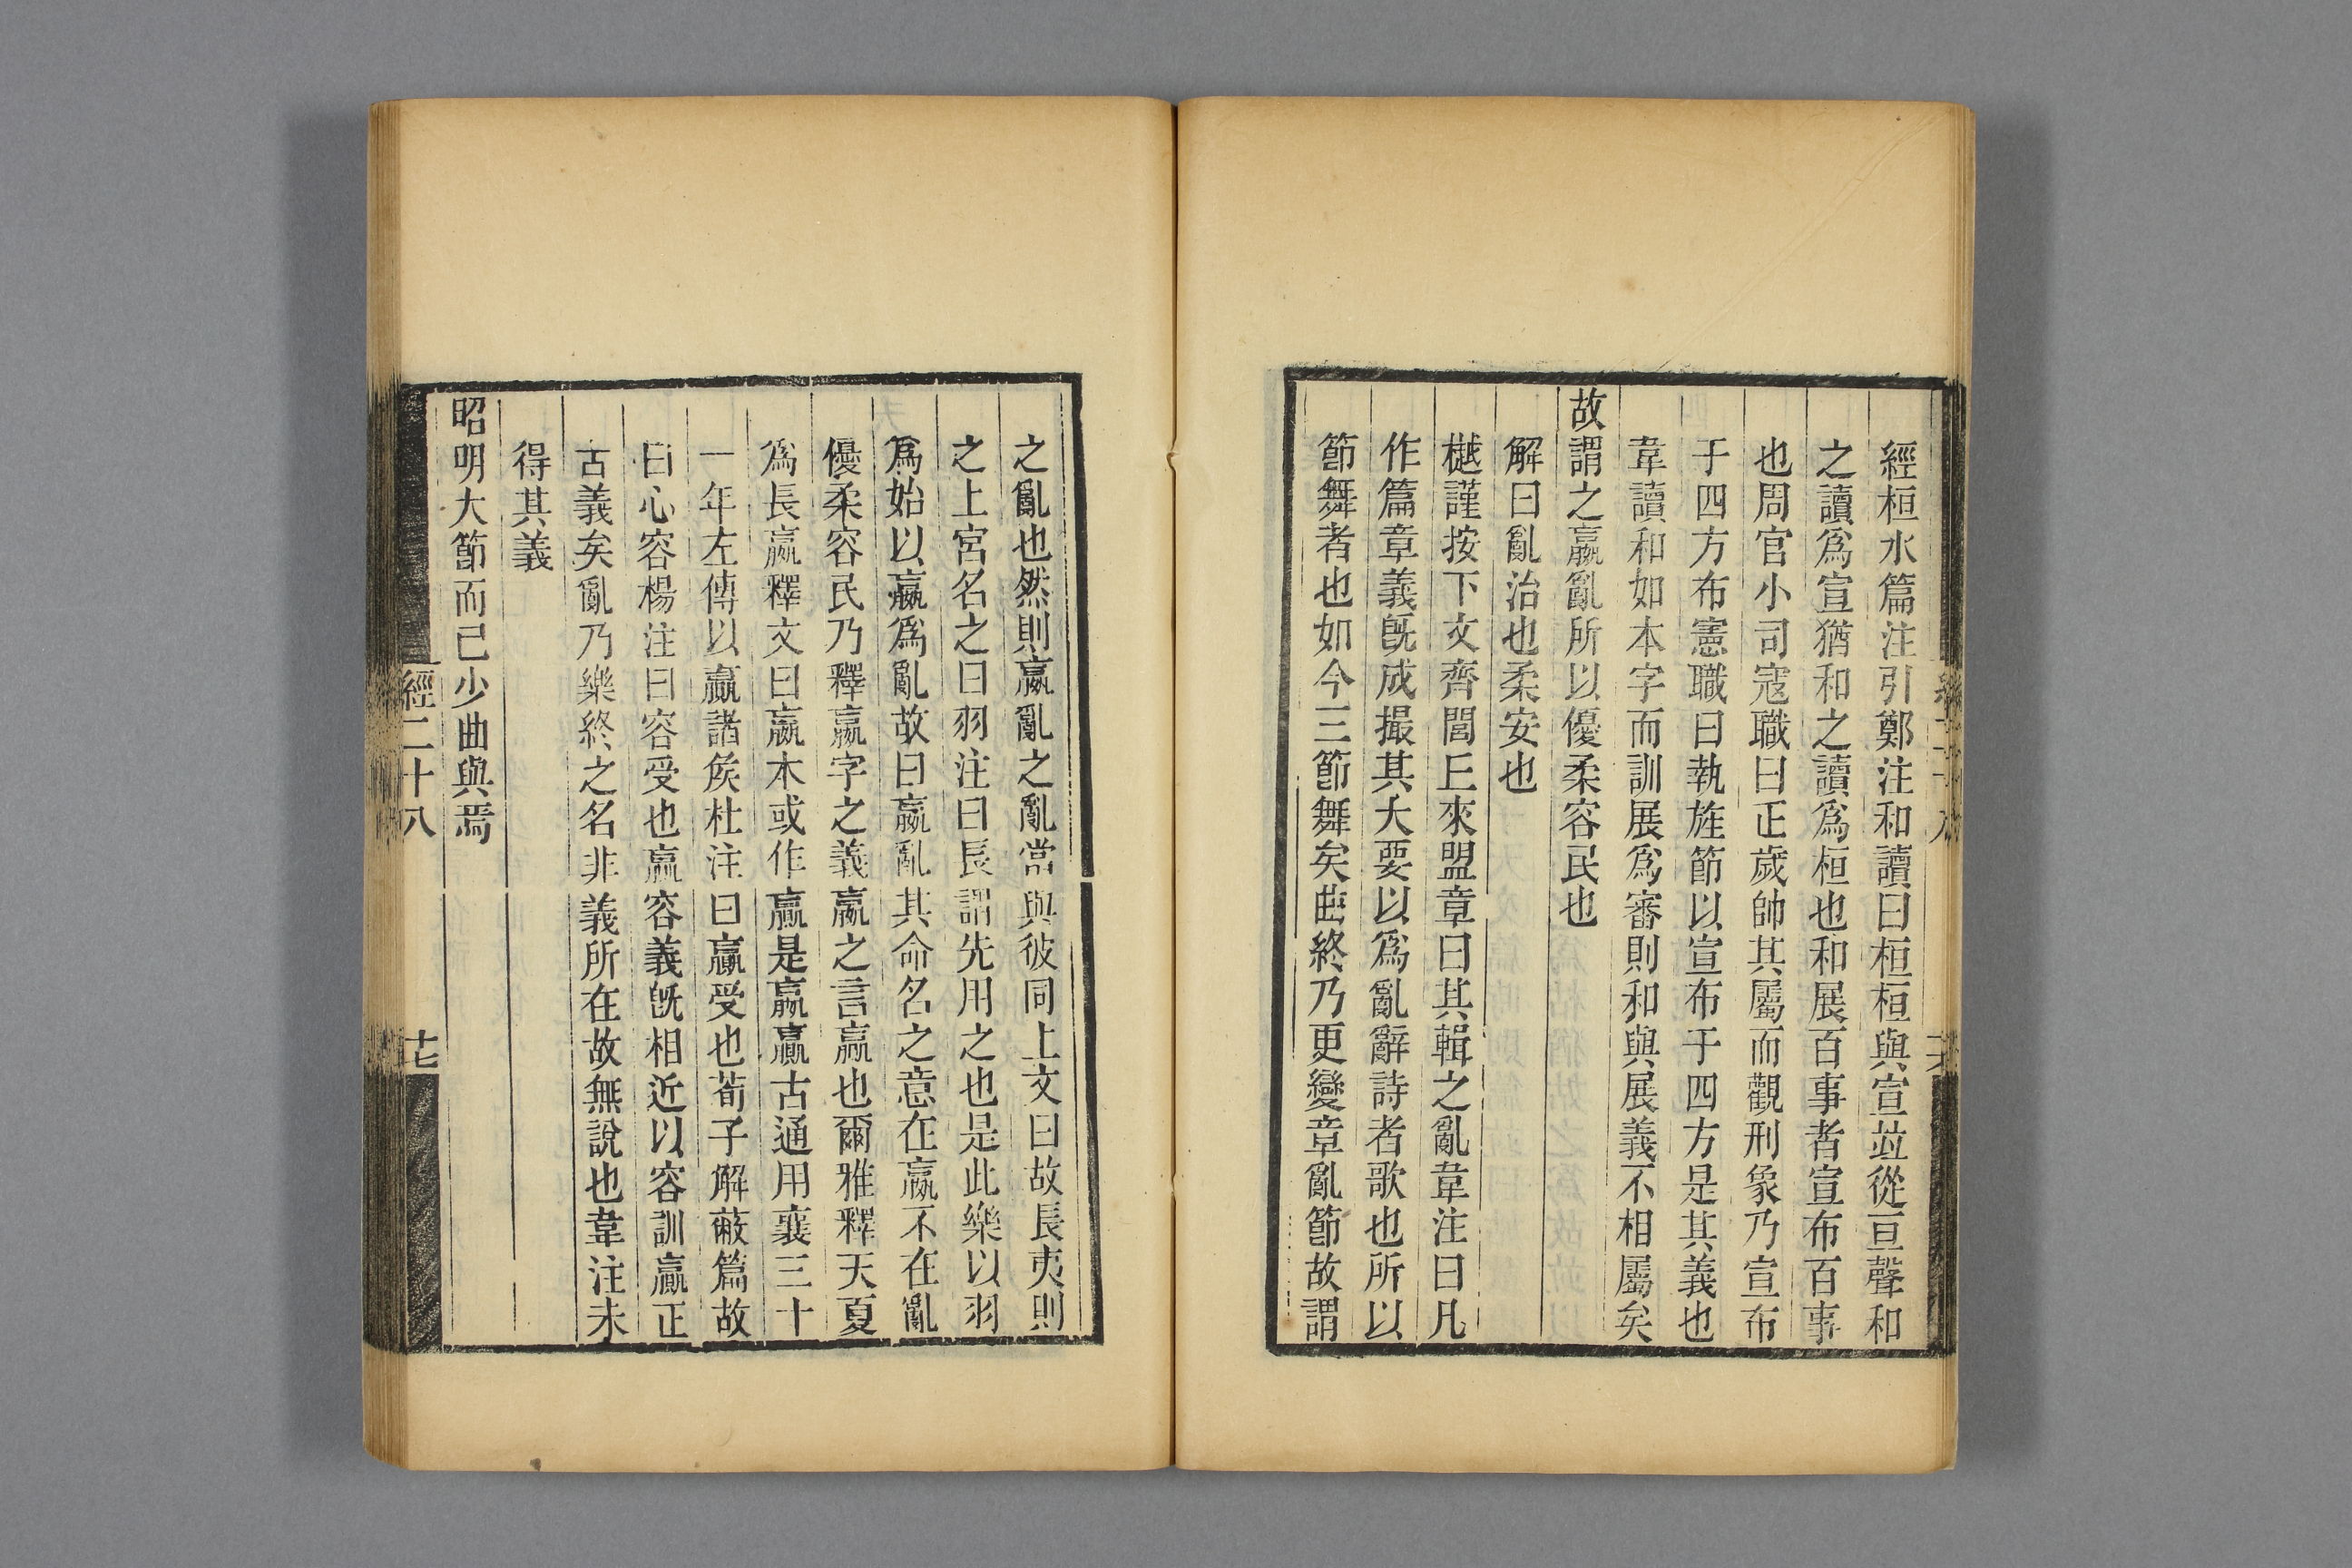 經桓水篇注引鄭注和讀曰桓桓與宣竝從亘聲和
之讀爲宣猶和之讀爲桓也和展百事者宣布百事
也周官小司寇職曰正歲帥其屬而觀刑象乃宣布
于四方布憲職曰執旌節以宣布于四方是其義也
韋讀和如本字而訓展爲審則和與展義不相屬矣
故謂之嬴亂所以優柔容民也
解曰亂治也柔安也
樾謹按下文齊閭丘來盟章曰其輯之亂韋注曰凡
作篇章義旣成撮其大要以爲亂辭詩者歌也所以
節舞者也如今三節舞矣曲終乃更變章亂節故謂
之亂也然則嬴亂之亂當與彼同上文曰故長夷則
之上宮名之曰羽注曰長謂先用之也是此樂以羽
爲始以嬴爲亂故曰嬴亂其命名之意在嬴不在亂
優柔容民乃釋嬴字之義嬴之言贏也爾雅釋天夏
爲長嬴釋文曰嬴本或作贏是嬴贏古通用襄三十
一年左傳以贏諸矦杜注曰贏受也荀子解蔽篇故
曰心容楊注曰容受也贏容義旣相近以容訓贏正
古義矣亂乃樂終之名非義所在故無說也韋注未
得其義
昭明大節而已少曲與焉
經二十八
十七